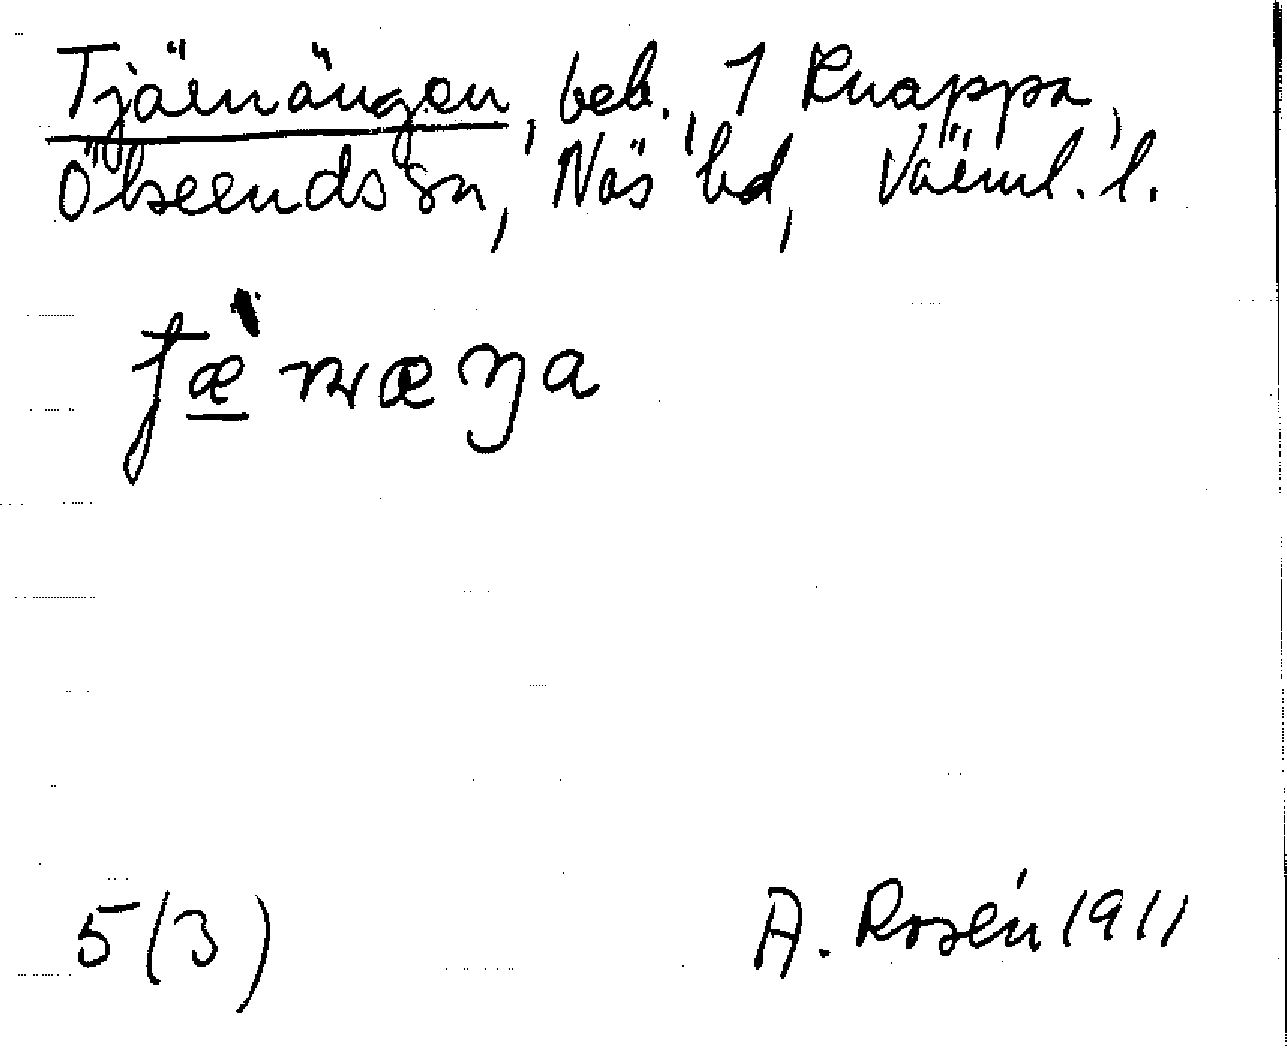 Tjärnängen, beb., 1 Knappa,
Ölseruds sn, Näs hd, Värml. l.
5(3)
A. Rosén 1911